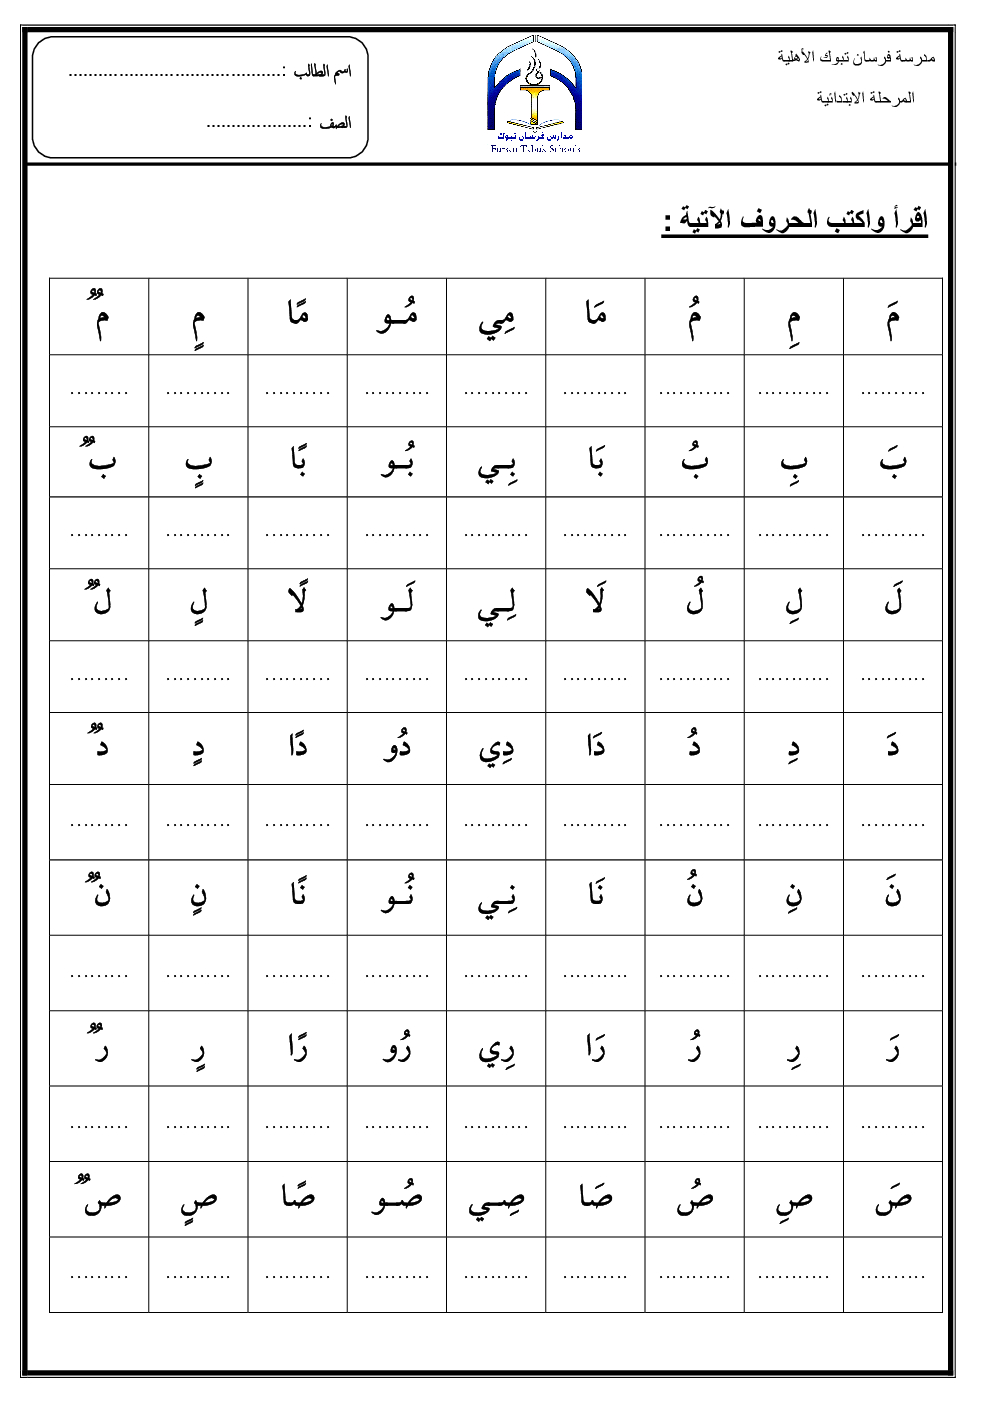 مدرسة فرسان تبوك الأهلية
المرحلة الابتدائية
مدارس فرسان تبوك
Fursan Tabuk Schools
اسم الطالب :..........................................
الصف :.....................
اقرأ واكتب الحروف الآتية :
مَ مِ مُ مَا مِي مُـو مًا مٍ مٌ
.......... ........... ........... .......... .......... .......... .......... .......... .........
بَ بِ بُ بَا بِـي بُـو بًا بٍ بٌ
.......... ........... ........... .......... .......... .......... .......... .......... .........
لَ لِ لُ لَا لِـي لَـو لًا لٍ لٌ
.......... ........... ........... .......... .......... .......... .......... .......... .........
دَ دِ دُ دَا دِي دُو دًا دٍ دٌ
.......... ........... ........... .......... .......... .......... .......... .......... .........
نَ نِ نُ نَا نِـي نُـو نًا نٍ نٌ
.......... ........... ........... .......... .......... .......... .......... .......... .........
رَ رِ رُ رَا رِي رُو رًا رٍ رٌ
.......... ........... ........... .......... .......... .......... .......... .......... .........
صَ صِ صُ صَا صِـي صُـو صًا صٍ صٌ
.......... ........... ........... .......... .......... .......... .......... .......... .........